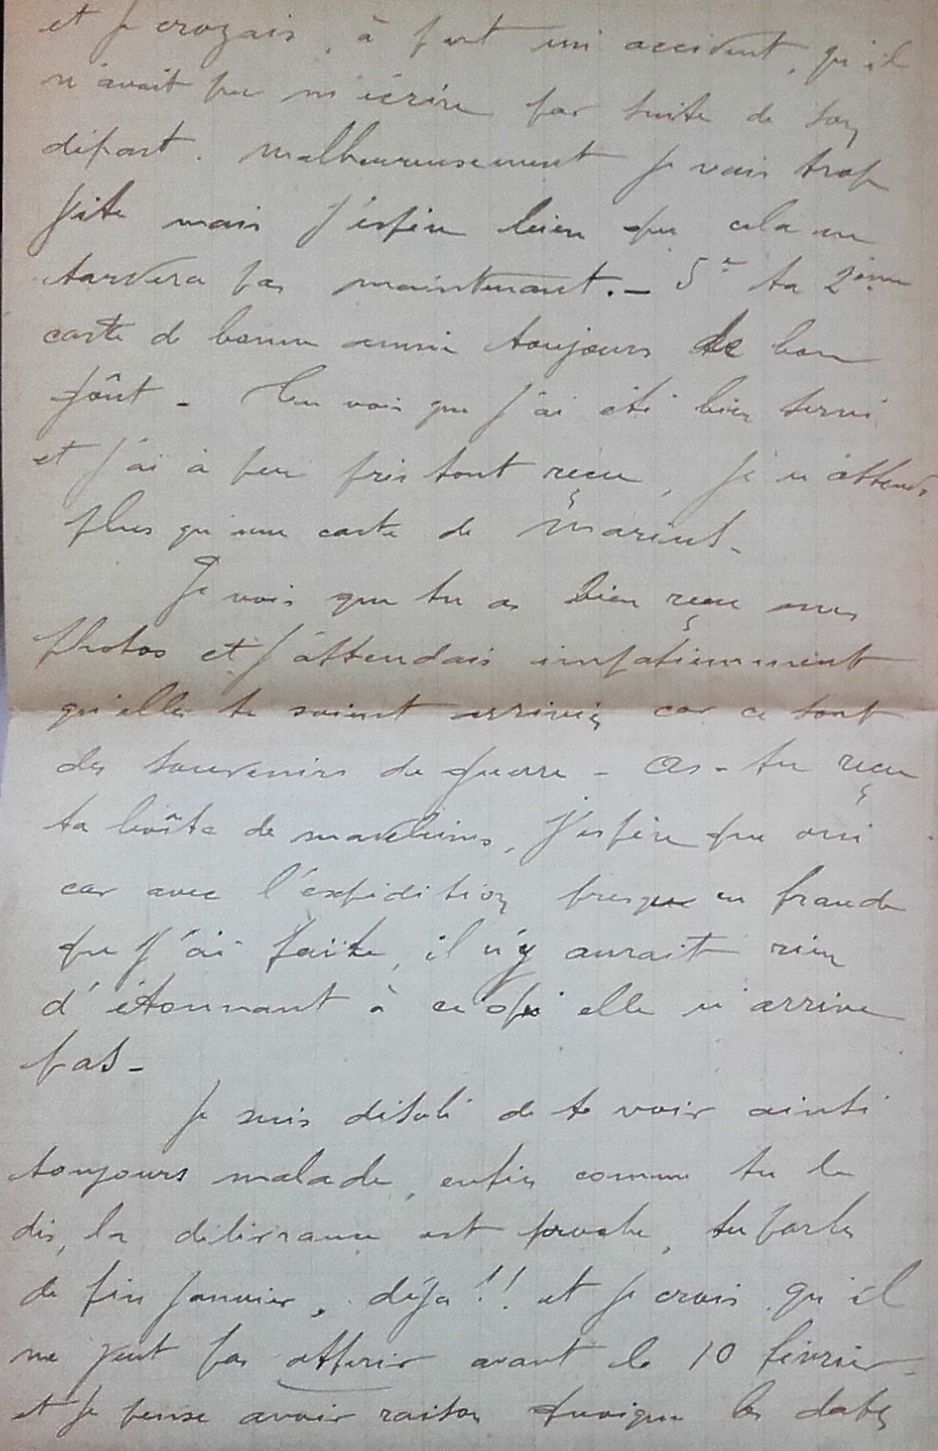 et je croyais, à part un accident, qu'il
n'avait pu m'écrire par suite de son
départ. Malheureusement je vais trop
vite mais j'espère bien que cela ne
tardera pas maintenant. — 5° ta 2ème
carte de bonne année toujours de bon
goût — Tu vois que j'ai été bien servi
et j'ai à peu près tout reçu, je n'attends
plus qu'une carte de
Je vois que tu as bien reçu mes
photos et j'attendais impatiemment
qu'elles te soient arrivées car ce sont
des souvenirs de guerre — As-tu reçu
ta boîte de madeleines, j'espère que oui
car avec l'expédition presque en fraude
que j'ai faite, il n'y aurait rien
d'étonnant à ce qu'elle n'arrive
pas —
Je suis désolé de te voir ainsi
toujours malade, enfin comme tu le
dis, la délivrance est proche, tu parles
de fin janvier, déjà !! et je crois qu'il
ne peut pas avant le 10 février
et je pense avoir raison quoique les dates